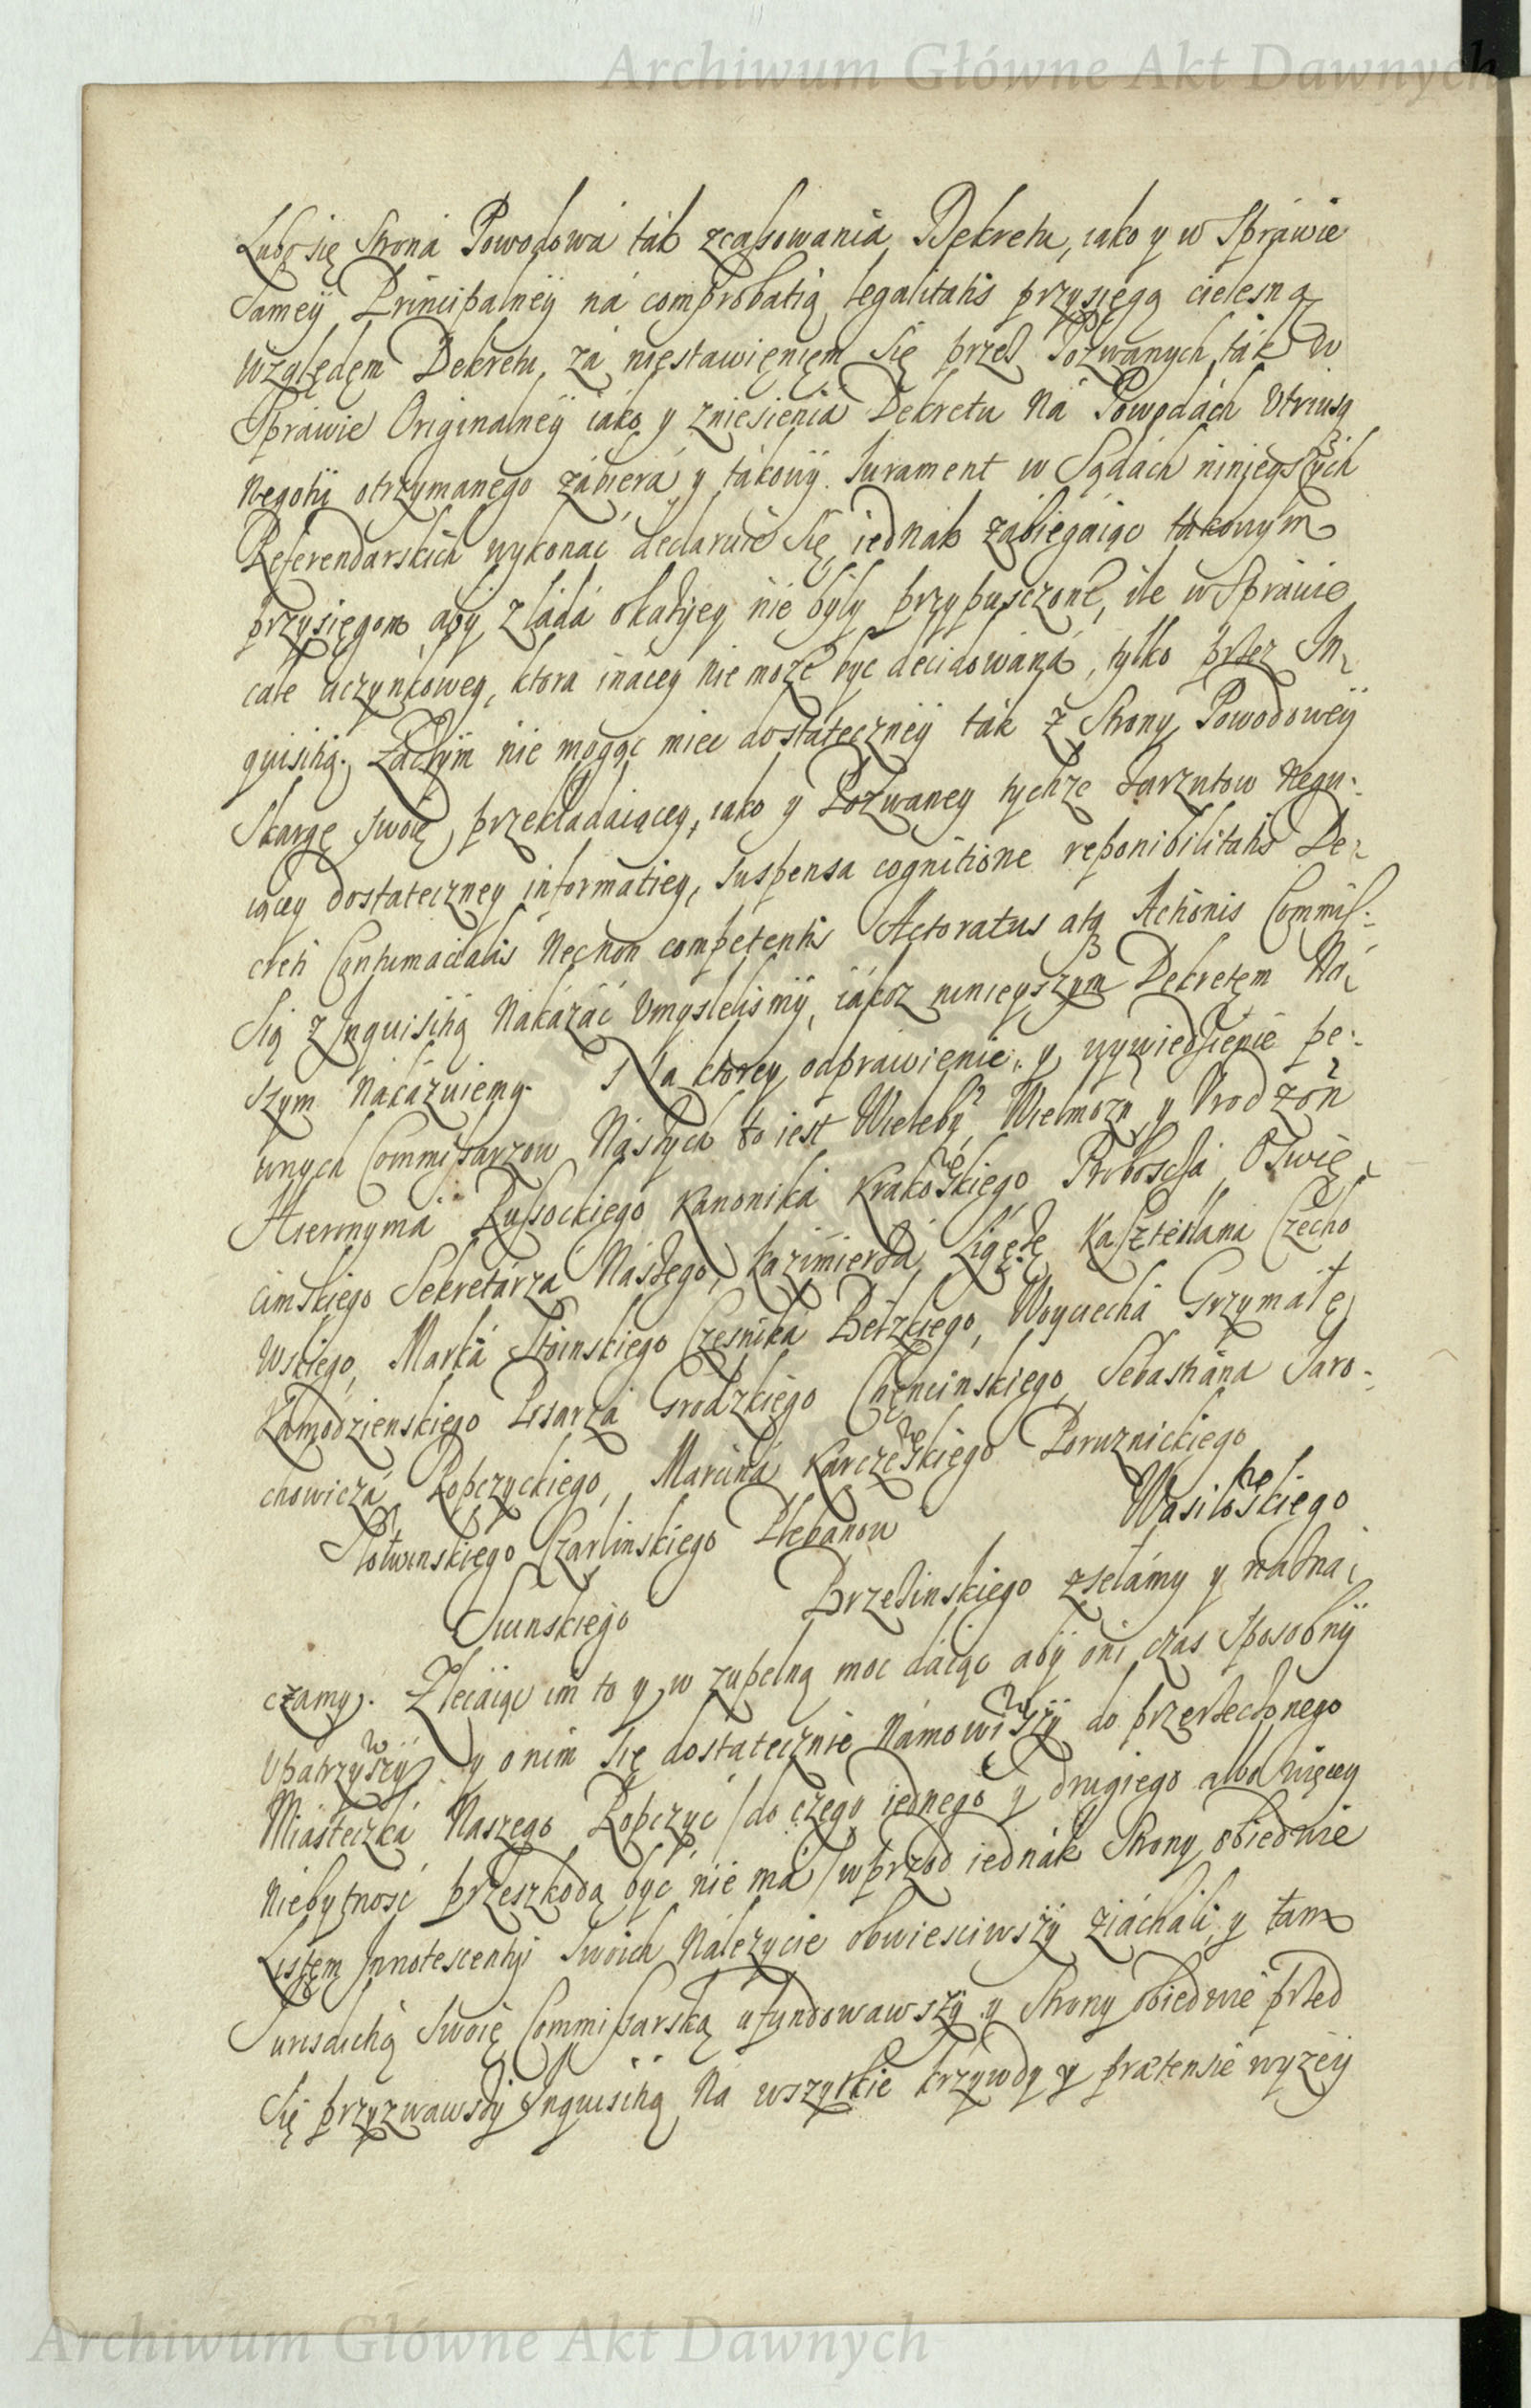 Archiwum Główne Akt Dawnych
Lubo się Strona Powodowa ták zcassowania Dekretu, iako y w Spráwie
Samey Principalneÿ ná comprobatią legalitatis przysięgą cielesną
względęm Dekretu, zá nięstawięnięm się przed Pozwanych, ták w
Spráwie Originalneÿ iáko y zniesienia Dekretu Ná Powodách Utriusq
Negotij otrzymanego zábiera y tákowÿ Iurament w Sądách ninieyszych
Referendarskich wykonáć declaruie się, iednak zábiegáiąc tákowym
przysięgom aby z ladá okatiey nie były przypusczone, ile w Spráwie
cale uczynkowey, ktora ináceÿ nie moze być decidowána, tylko przez In
quisitią. Záczym nie mogąc miec dostáteczneÿ ták z Strony Powodoweÿ
Skargę swoię przekładaiącey, iako y Pozwaney tychze Zarzutow negu-
iącey dostateczney informatiey, suspensa cognitione reponibilitatis De-
creti Contumacialis Necnon competentis Actoratus atq Actionis Commis-
Sią z Inquisitią Nakázáć Umyslelismÿ, iákoz ninieyszym Dekretęm Ná
szym Nákázuiemy. Na ktorey odprawienie y wywiedzienie pe-
wnych Commissarzow Nászych to iest Wieleb Wielmozn y Urodzon
Hieronyma Russockiego Kanonika Krakowskiego Proboscza Oswię
cimskiego Sekretárza Nászego, Kazimierza Ligęzę Kasztellana Czecho
wskiego, Marka Stoinskiego Czesnika Bełzkiego, Woyciecha Grzymałę
Zamodzienskiego Pisarza Grodzkiego Chęncinskiego, Sebastiana Jaro-
chowicza Ropczyckiego, Marcina Karczewskiego Poruznickiego
Slotwinskiego Czarlinskiego Plebanow Wasilowskiego
Swinskiego Brzezinskiego zsełámy y názna
czamy. Zlecáiąc im to y w zupełną moc dáiąc aby oni czas Sposobnÿ
Upatrzywszÿ y o nim się dostátecznie Námowiwszÿ do przerzeczonego
Miásteczka Naszego Ropczyc /do czego iednego y drugiego albo więcey
niebytność przeszkodą byc nie ma/ wprzod iednák Strony obiedwie
Listęm Innotescentiÿ Swoich Nálezycie obwiesciwszÿ ziácháli, y tam
Iurisdictią Swoię Commissarską ufundowawszÿ y Strony obiedwie przed
Się przyzwawszÿ Inquisitią Ná wszytkie krzywdy y prætensie wyzeÿ
Archiwum Główne Akt Dawnych